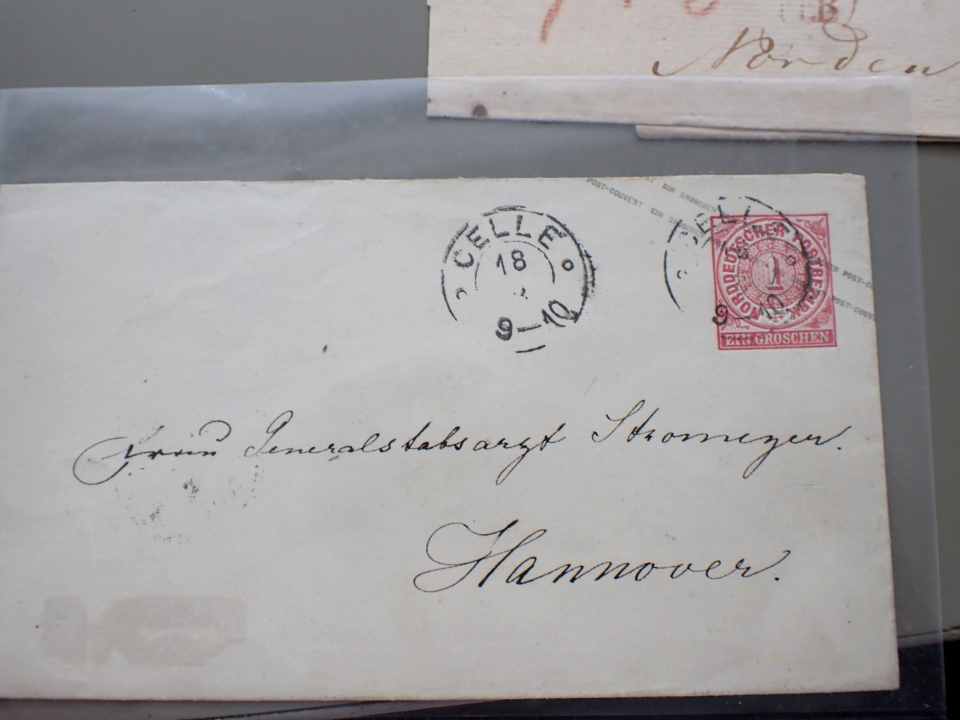 B
Norden
POST-COUVERT EIN GROSCHEN
CELLE
18
9-10
CELLE
9-10
NORDDEUTSCHER POSTBEZIRK
1
EIN GROSCHEN
Frau Generalstabsarzt Stromeyer.
Hannover.